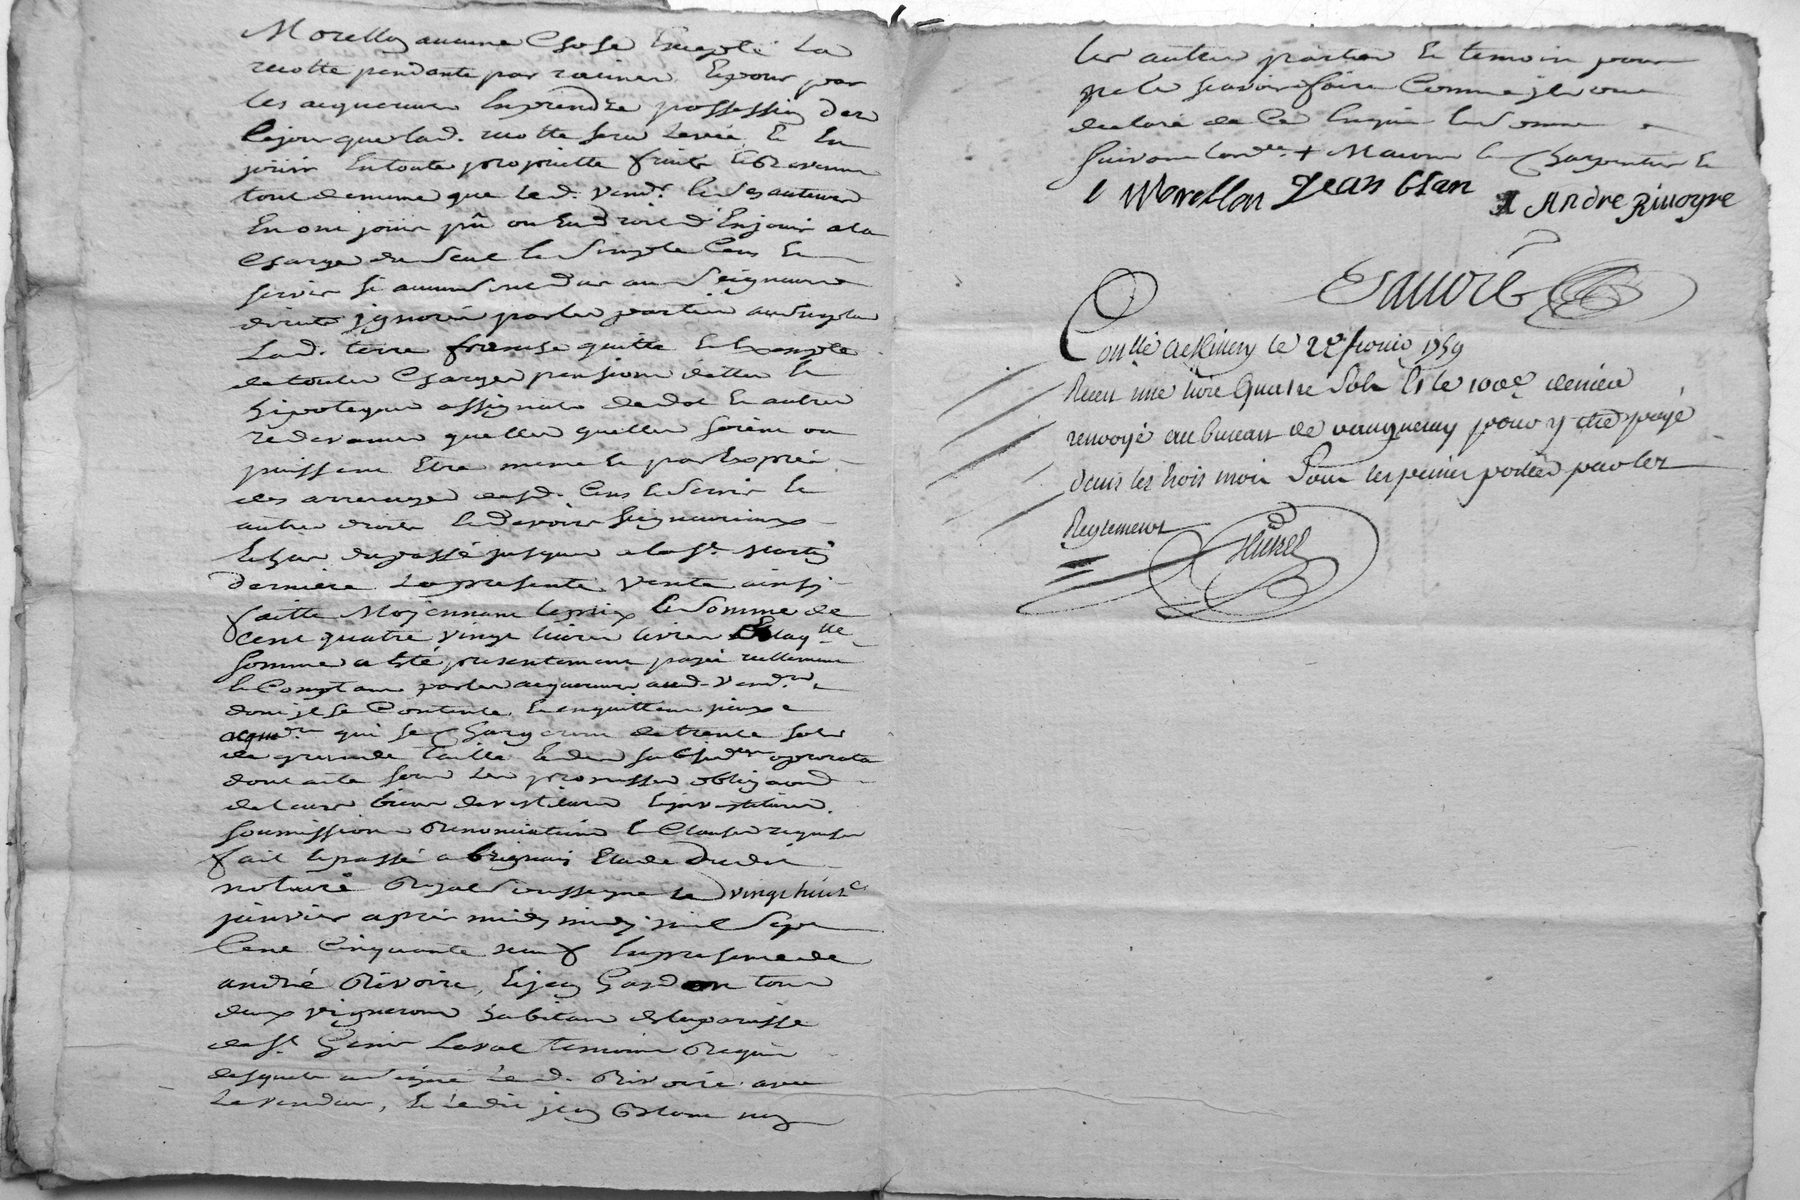 Morellon aucune Chose Excepté La
recolte pendante par racines Et pour par
les acquereurs En prendre possession dez
le jour que lad. recolte sera levée Et En
jouir En toute proprietté fruits Et Revenus
tout de meme que led. vend.r Et Ses auteurs
En ont joui pû ou Eu Droit d'En jouir a la
Charge du Seul Et Simple Cens Et
servis si aucun Est dû au Seigneur
direct ignoré par les parties
Lad. terre franche quitte Et Exempte
de toutes Charges pensions dettes Et
hipoteques assignats de dot Et autres
redevances quelles quelles soient ou
puissent Etre meme Et par Exprés
des arrerages desd. Cens Et Servis Et
autres droits Et Devoirs Seigneuriaux
Echus du passé jusques a la St. Martin
derniere La presente vente ainsi
faitte Moyennant le prix Et Somme de
Cent quatre vingt livres Laq.lle
Somme a Eté presentement payée reellement
Et Comptant par les acquereurs aud. Vend.r
dont il Se Contente Et En quitte
qui se Chargeront de trente sols
de grande taille Et des subsides au prorata
dont acte sous Les promesses obligaons
de leurs biens devestitures Et investitures
Soumissions Renonciations Et Clauses requises
fait Et passé a brignais Etude Dudit
notaire Royal Soussigné Le vingt huit
janvier aprés midy mil Sept
Cent Cinquante neuf En presence de
andré Rivoire, Et jean Gardon tous
deux vignerons habitans de la parroisse
de St. Genis Laval temoins Requis
desquels a Signé Led. Rivoire avec
Le vendeur, Et Ledit jean Blanc non
les autres parties Et temoin pour
ne le scavoir faire Comme ils ont
declaré de Ce Enquis Et Somme
Suivant Lord.ce + Maron le Charpentier Et
Morellon Jean blan André Rivoyre
Con.llé a le 2e fevrier 1759
Receu une livre Quatre Sols Et le 100e denier
renvoyé au bureau de vaugneray pour y etre payé
dans les trois mois Sous les peines portées par les
Reglemens